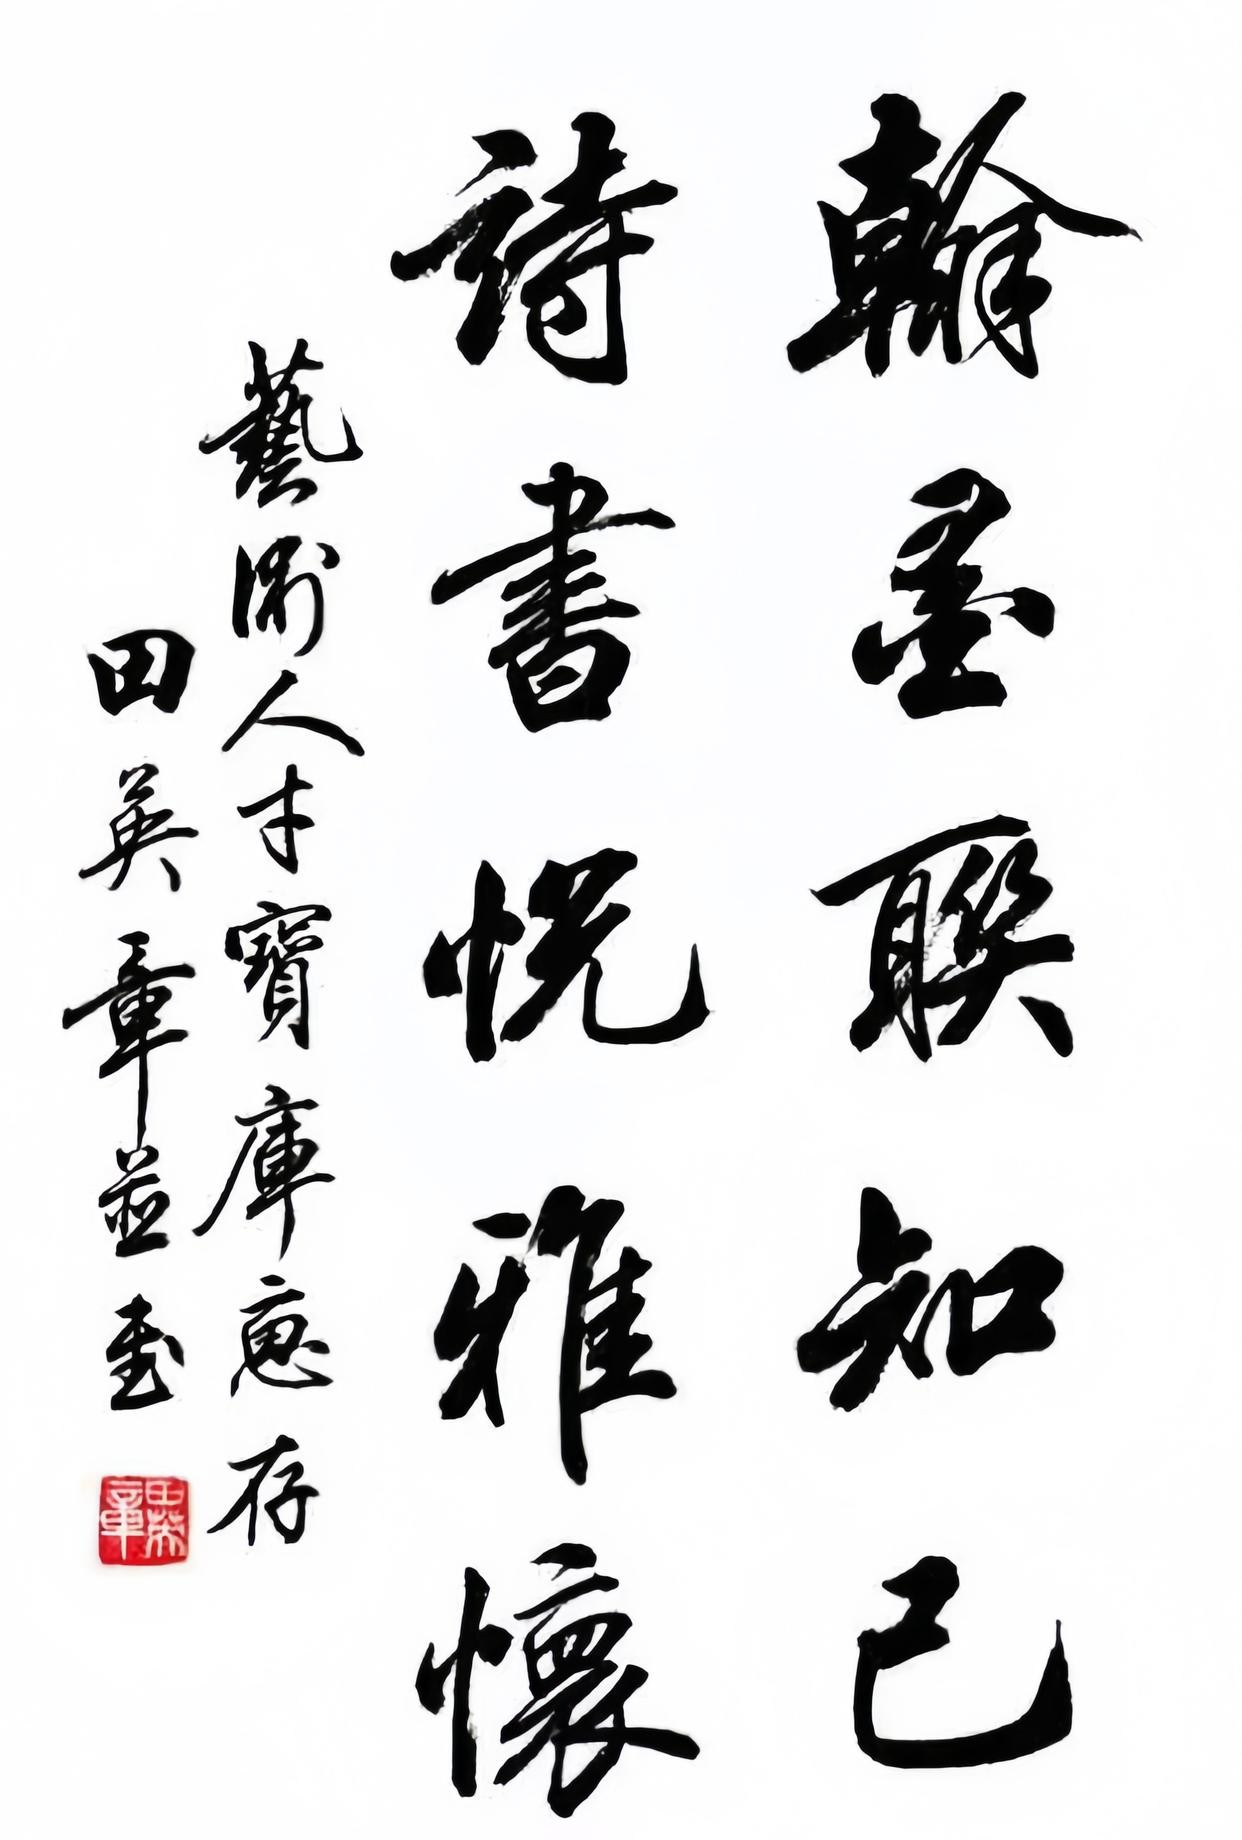 翰墨聯知己
詩書悦雅懷
藝術人才寶庫惠存
田英章並
田英章